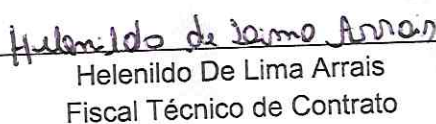 Helenildo de Lima Arrais
Helenildo De Lima Arrais
Fiscal Técnico de Contrato